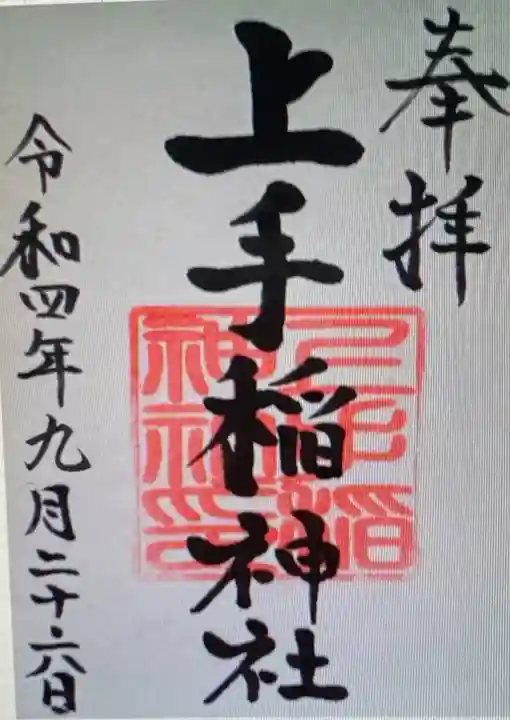 奉拝
上手稲神社
令和四年九月二十六日
上手稲
神社印